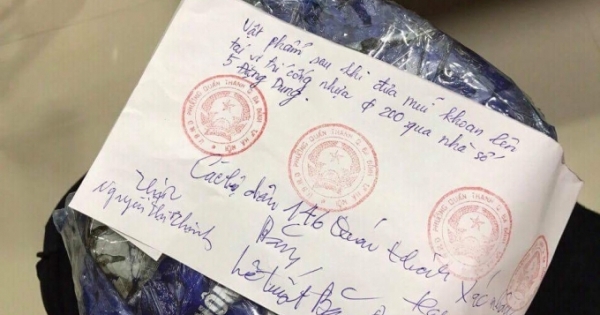 Vật phẩm sau khi đưa mũi khoan lên
tại vị trí cống nhựa φ 200 qua nhà số
5 Đặng Dung.
U.B.N.D PHƯỜNG QUÁN THÁNH Q. BA ĐÌNH TP. HÀ NỘI
U.B.N.D PHƯỜNG QUÁN THÁNH Q. BA ĐÌNH TP. HÀ NỘI
U.B.N.D PHƯỜNG QUÁN THÁNH Q. BA ĐÌNH TP. HÀ NỘI
Các hộ dân 146 Quán Thánh Xác
Nguyễn Thị Thành